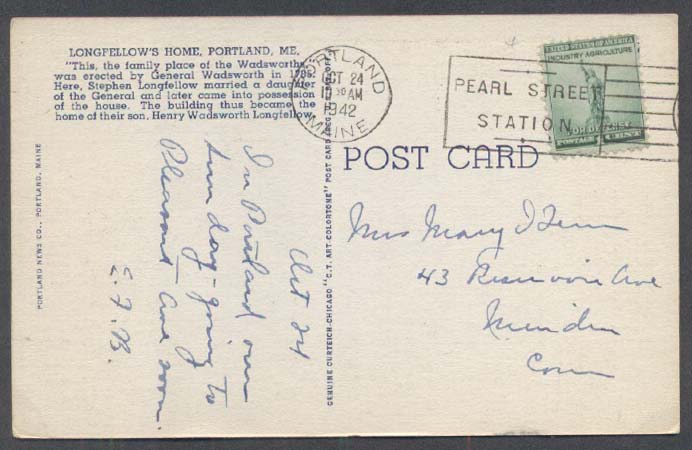 LONGFELLOW'S HOME, PORTLAND, ME.
"This, the family place of the Wadsworths,
was erected by General Wadsworth in 1785.
Here, Stephen Longfellow married a daughter
of the General and later came into possession
of the house. The building thus became the
home of their son, Henry Wadsworth Longfellow.
PORTLAND
OCT 24
10 30 AM
1942
MAINE
PEARL STREET
STATION
UNITED STATES OF AMERICA
INDUSTRY AGRICULTURE
FOR DEFENSE
POSTAGE 1 CENT
POST CARD
PORTLAND NEWS CO., PORTLAND, MAINE
Oct 24
In Portland over
Sunday - going to
Pleasant Ave soon.
E. F. B.
GENUINE CURTEICH-CHICAGO "C.T. ART-COLORTONE" POST CARD
Mrs Mary
43 Reservoir Ave
Meriden
Conn